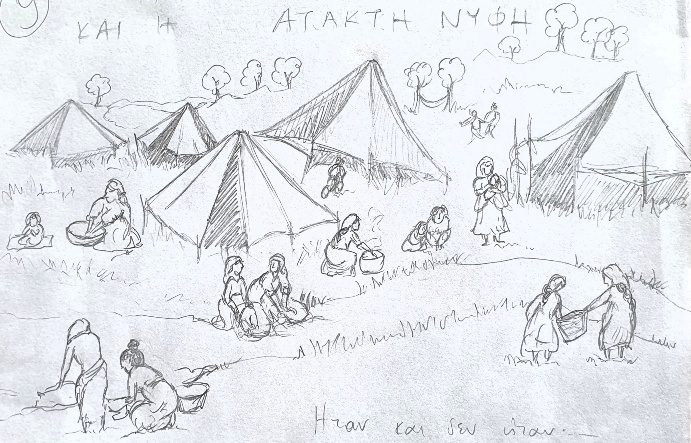 ΚΑΙ Η ΑΤΑΚΤΗ ΝΥΦΗ
Ηταν και δεν ήταν...